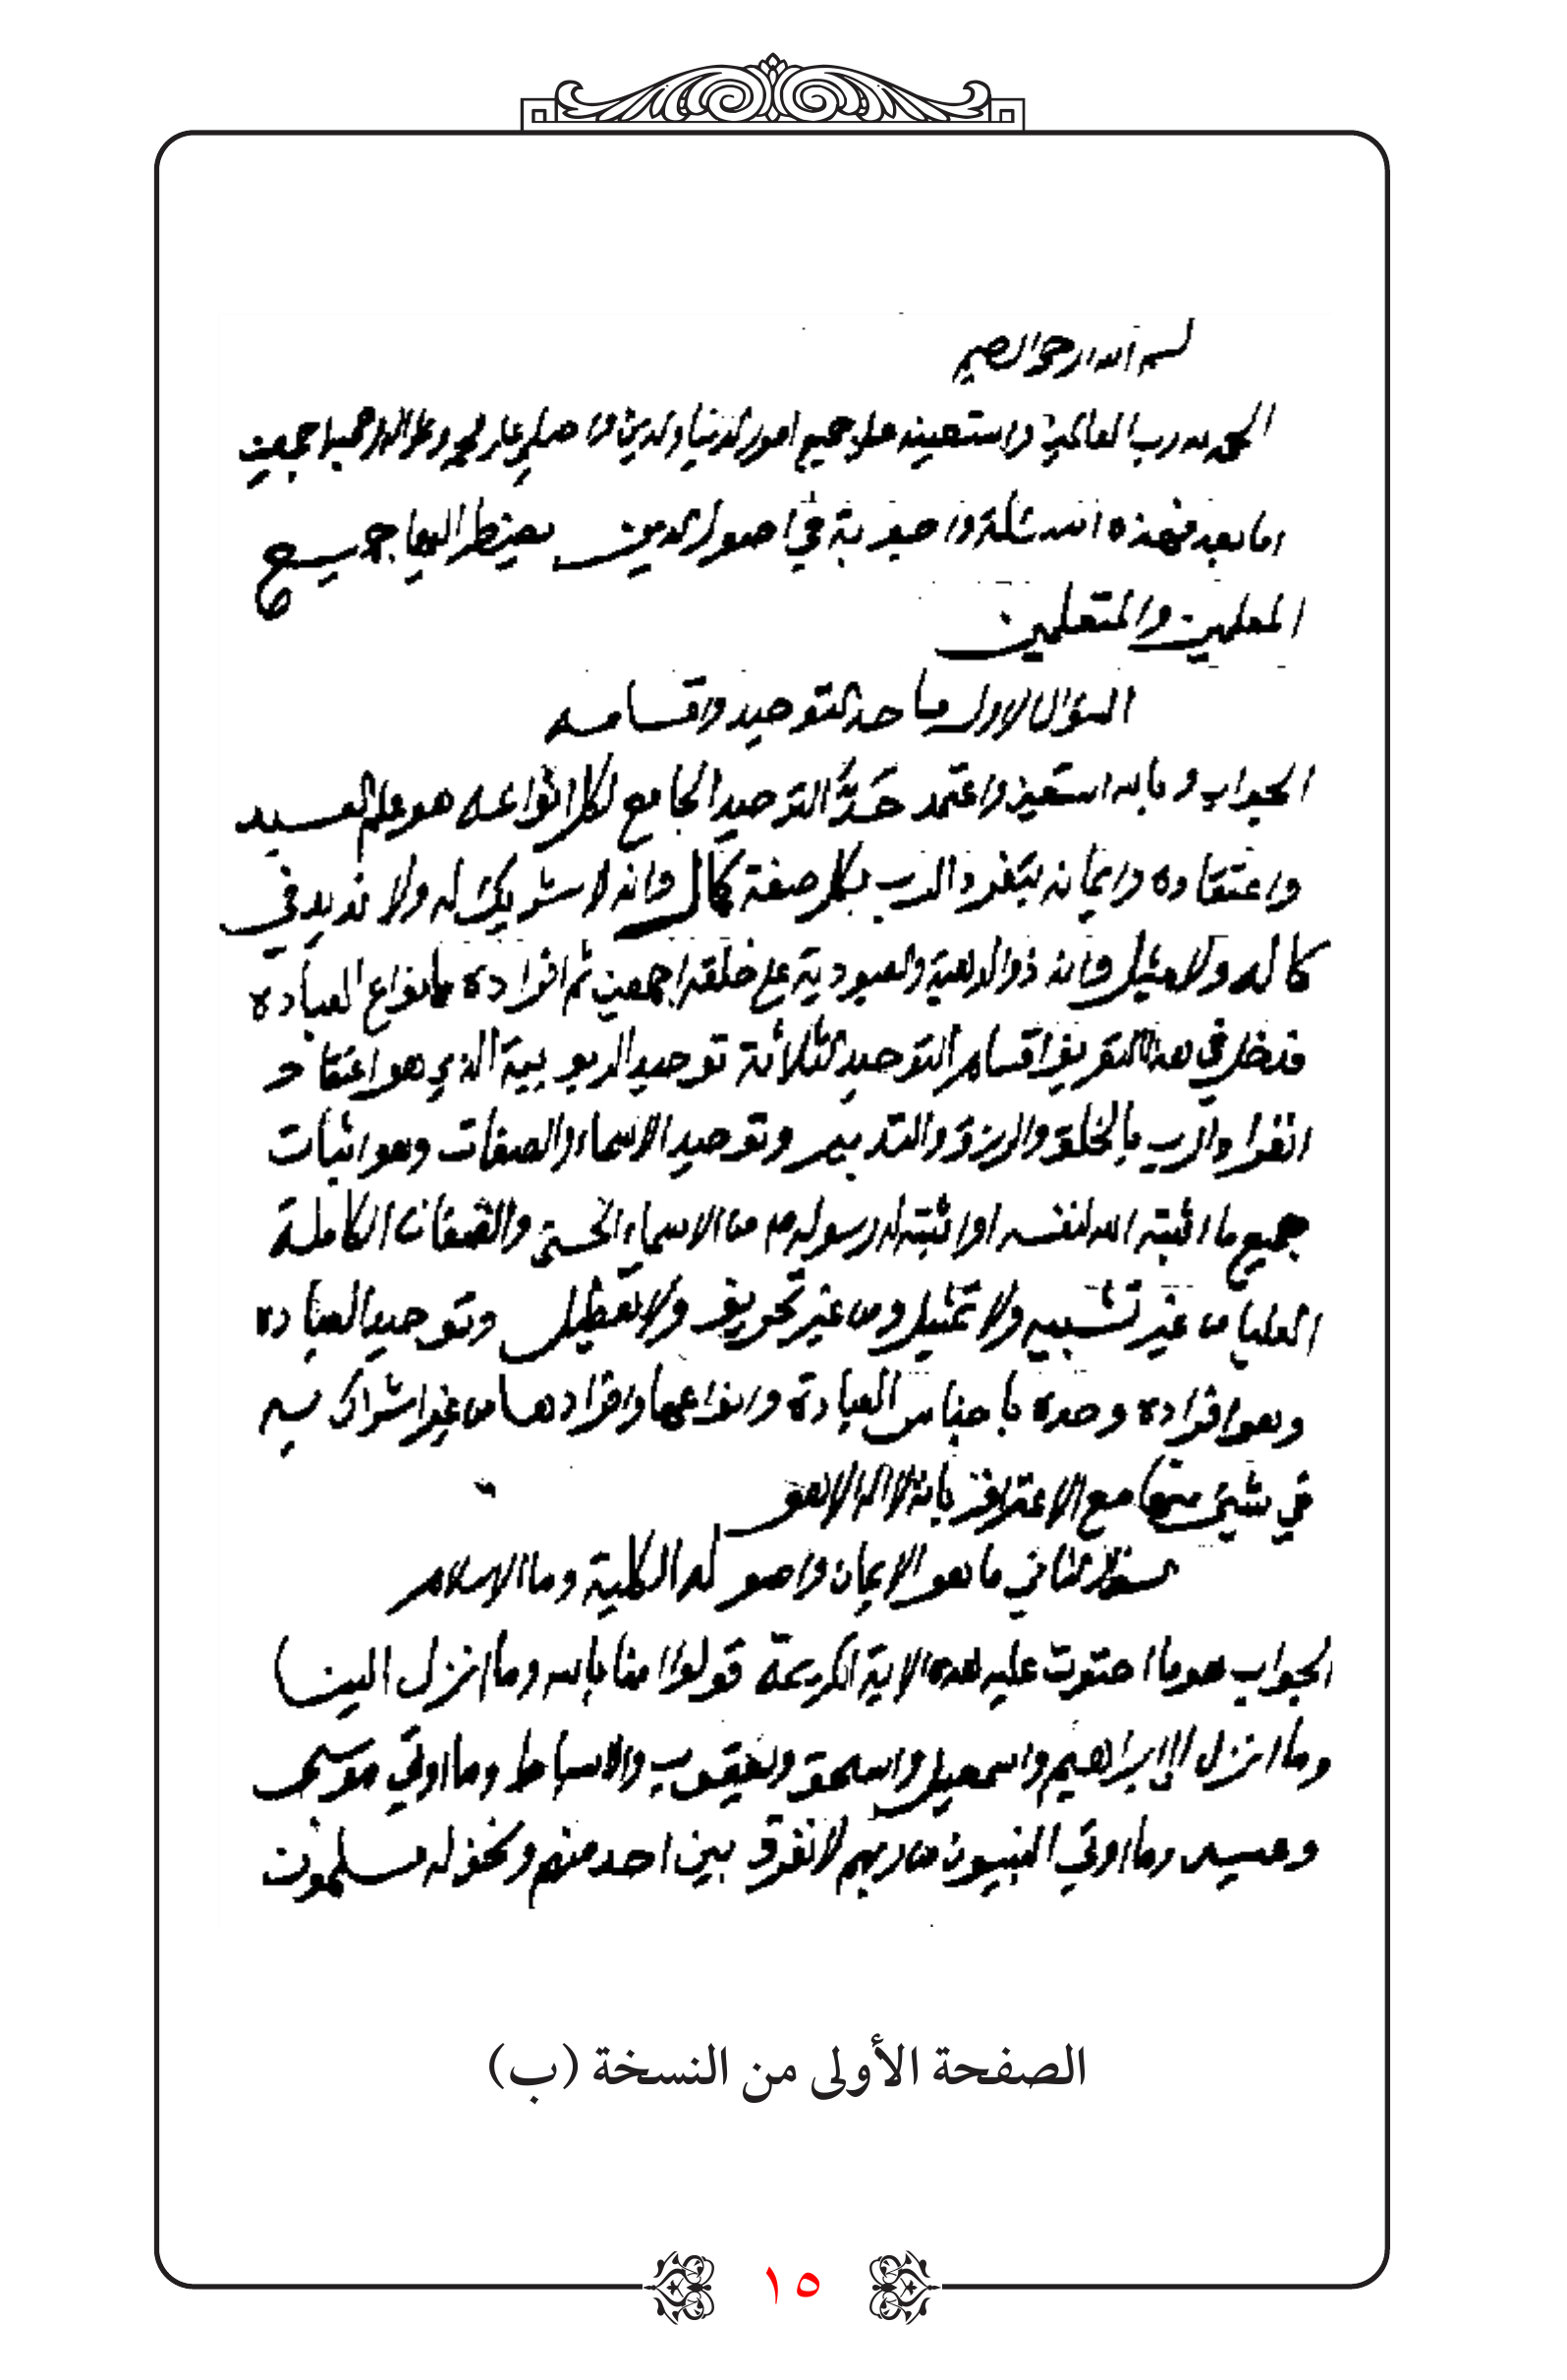 بسم الله الرحمن الرحيم
الحمد لله رب العالمين واستعينه على جميع امور الدنيا والدين واصلي على محمد وعلى اله وصحبه اجمعين
اما بعد فهذه اسئلة واجوبة في اصول الدين يضطر اليها جميع
المعلمين والمتعلمين
السؤال الاول ما حد التوحيد واقسامه
الجواب وبالله استعين واعتمد حَدُّ التوحيد الجامع لكل انواعه هو علم العبد
واعتقاده وايمانه بتفرد الرب بكل صفة كمال وانه لا شريك له ولا نديد في
كماله ولا مثيل وانه ذو الالوهية والعبودية على خلقه اجمعين ثم افراده بانواع العباده
فدخل في هذا التعريف اقسام التوحيد الثلاثة توحيد الربوبية الذي هو اعتقاد
انفراد الرب بالخلق والرزق والتدبير وتوحيد الاسماء والصفات وهو اثبات
جميع ما اثبته الله لنفسه او اثبته له رسوله م من الاسماء الحسنى والصفات الكاملة
العليا من غير تشبيه ولا تمثيل ومن غير تحريف ولا تعطيل وتوحيد العباده
وهو افراده وحده باجناس العبادة وانواعها وافرادها من غير اشراك به
في شيئ منها مع الاعتراف بانه لا اله الا هو
سؤال الثاني ما هو الايمان واصوله الكلية وما الاسلام
الجواب هو ما احتوت عليه هذه الاية الكريمة قولوا امنا بالله وما انزل الينا
وما انزل الى ابراهيم واسمعيل واسحق ويعقوب والاسباط وما اوتي موسى
وعيسى وما اوتي النبيون من ربهم لا نفرق بين احد منهم ونحن له مسلمون
الصفحة الأولى من النسخة (ب)
١٥